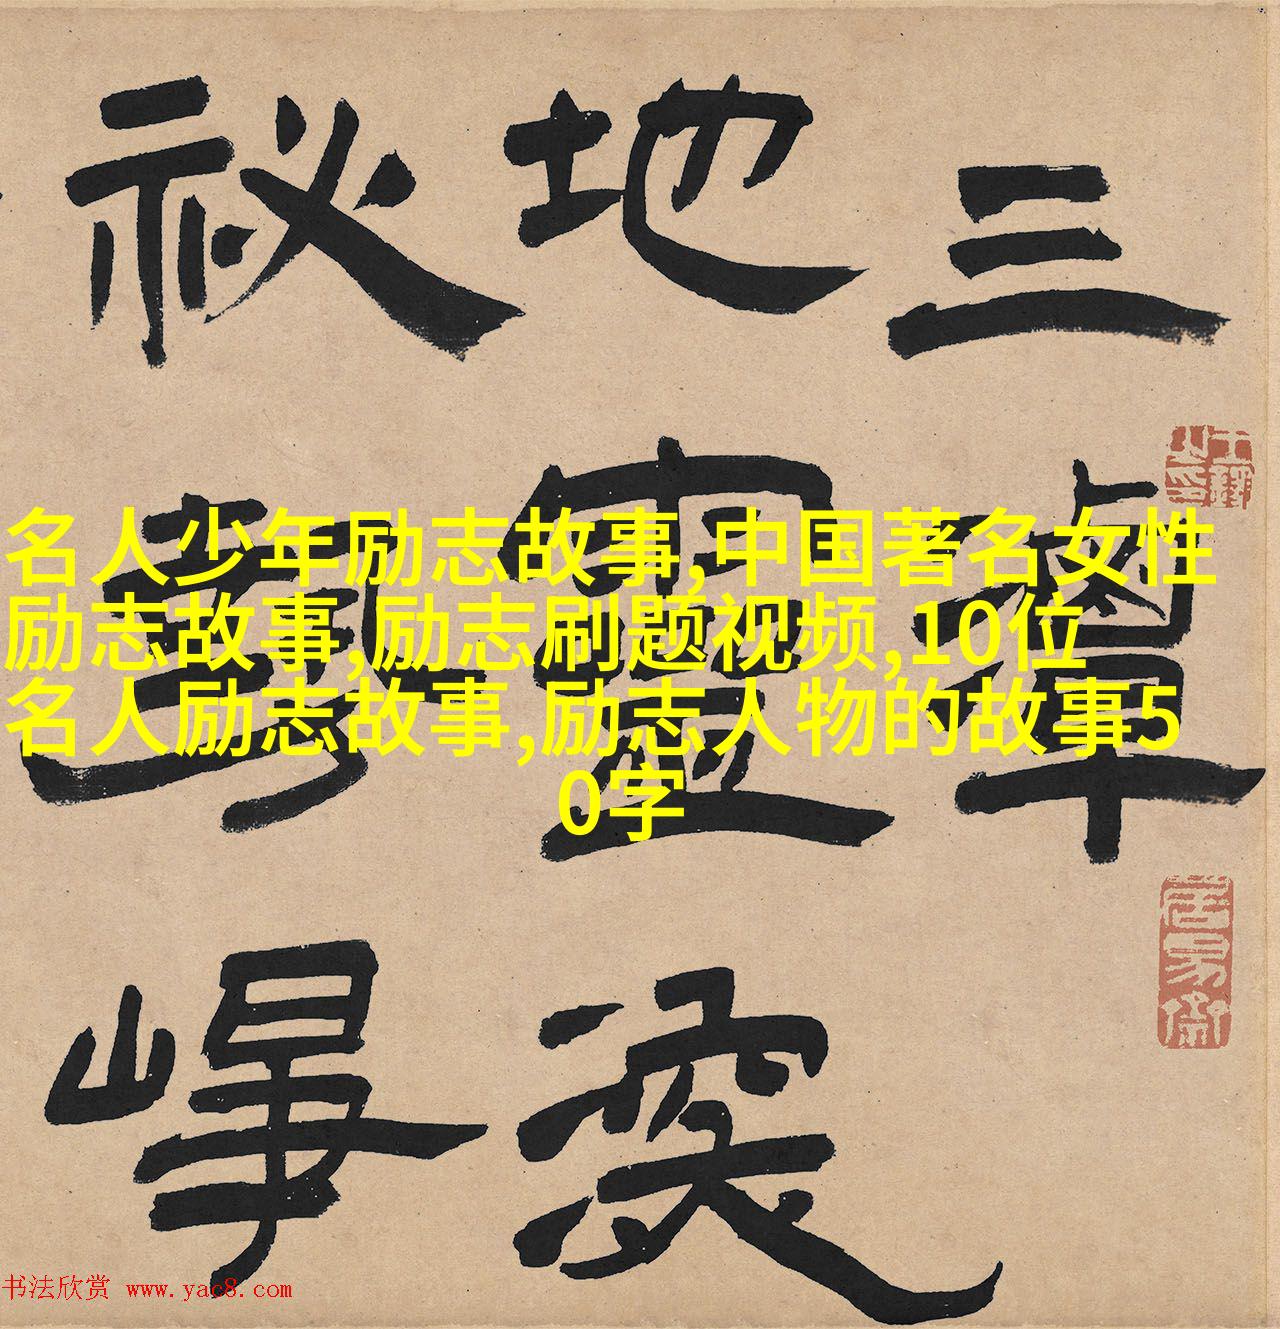 三
地靈
祕
名人少年励志故事,中国著名女性
励志故事,励志刷题视频,10位
名人励志故事,励志人物的故事5
0字
书法欣赏 www.yac8.com